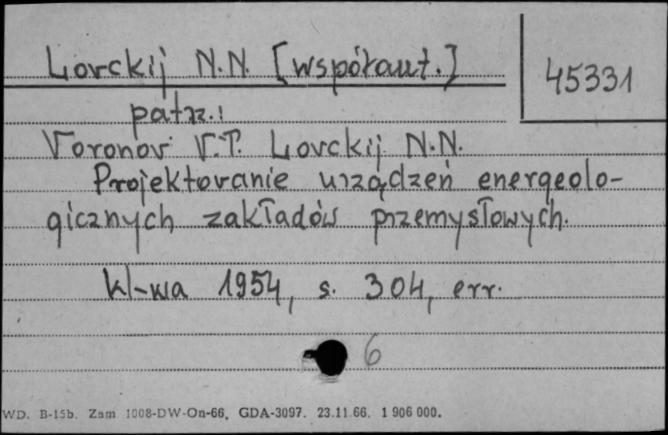 Lovckij N.N. [współaut.]
45331
patrz:
Voronov V.T. Lovckij N.N.
Projektovanie urządzeń energeolo-
gicznych zakładów przemysłowych.
kl-wa 1954, s. 304, err.
6
WD. B-15b. Zam 1008-DW-On-66, GDA-3097. 23.11.66. 1 906 000.